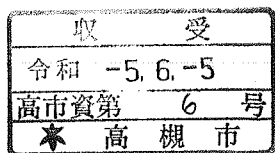 収 受
令和 -5, 6, -5
高市資第 6 号
★ 高槻市